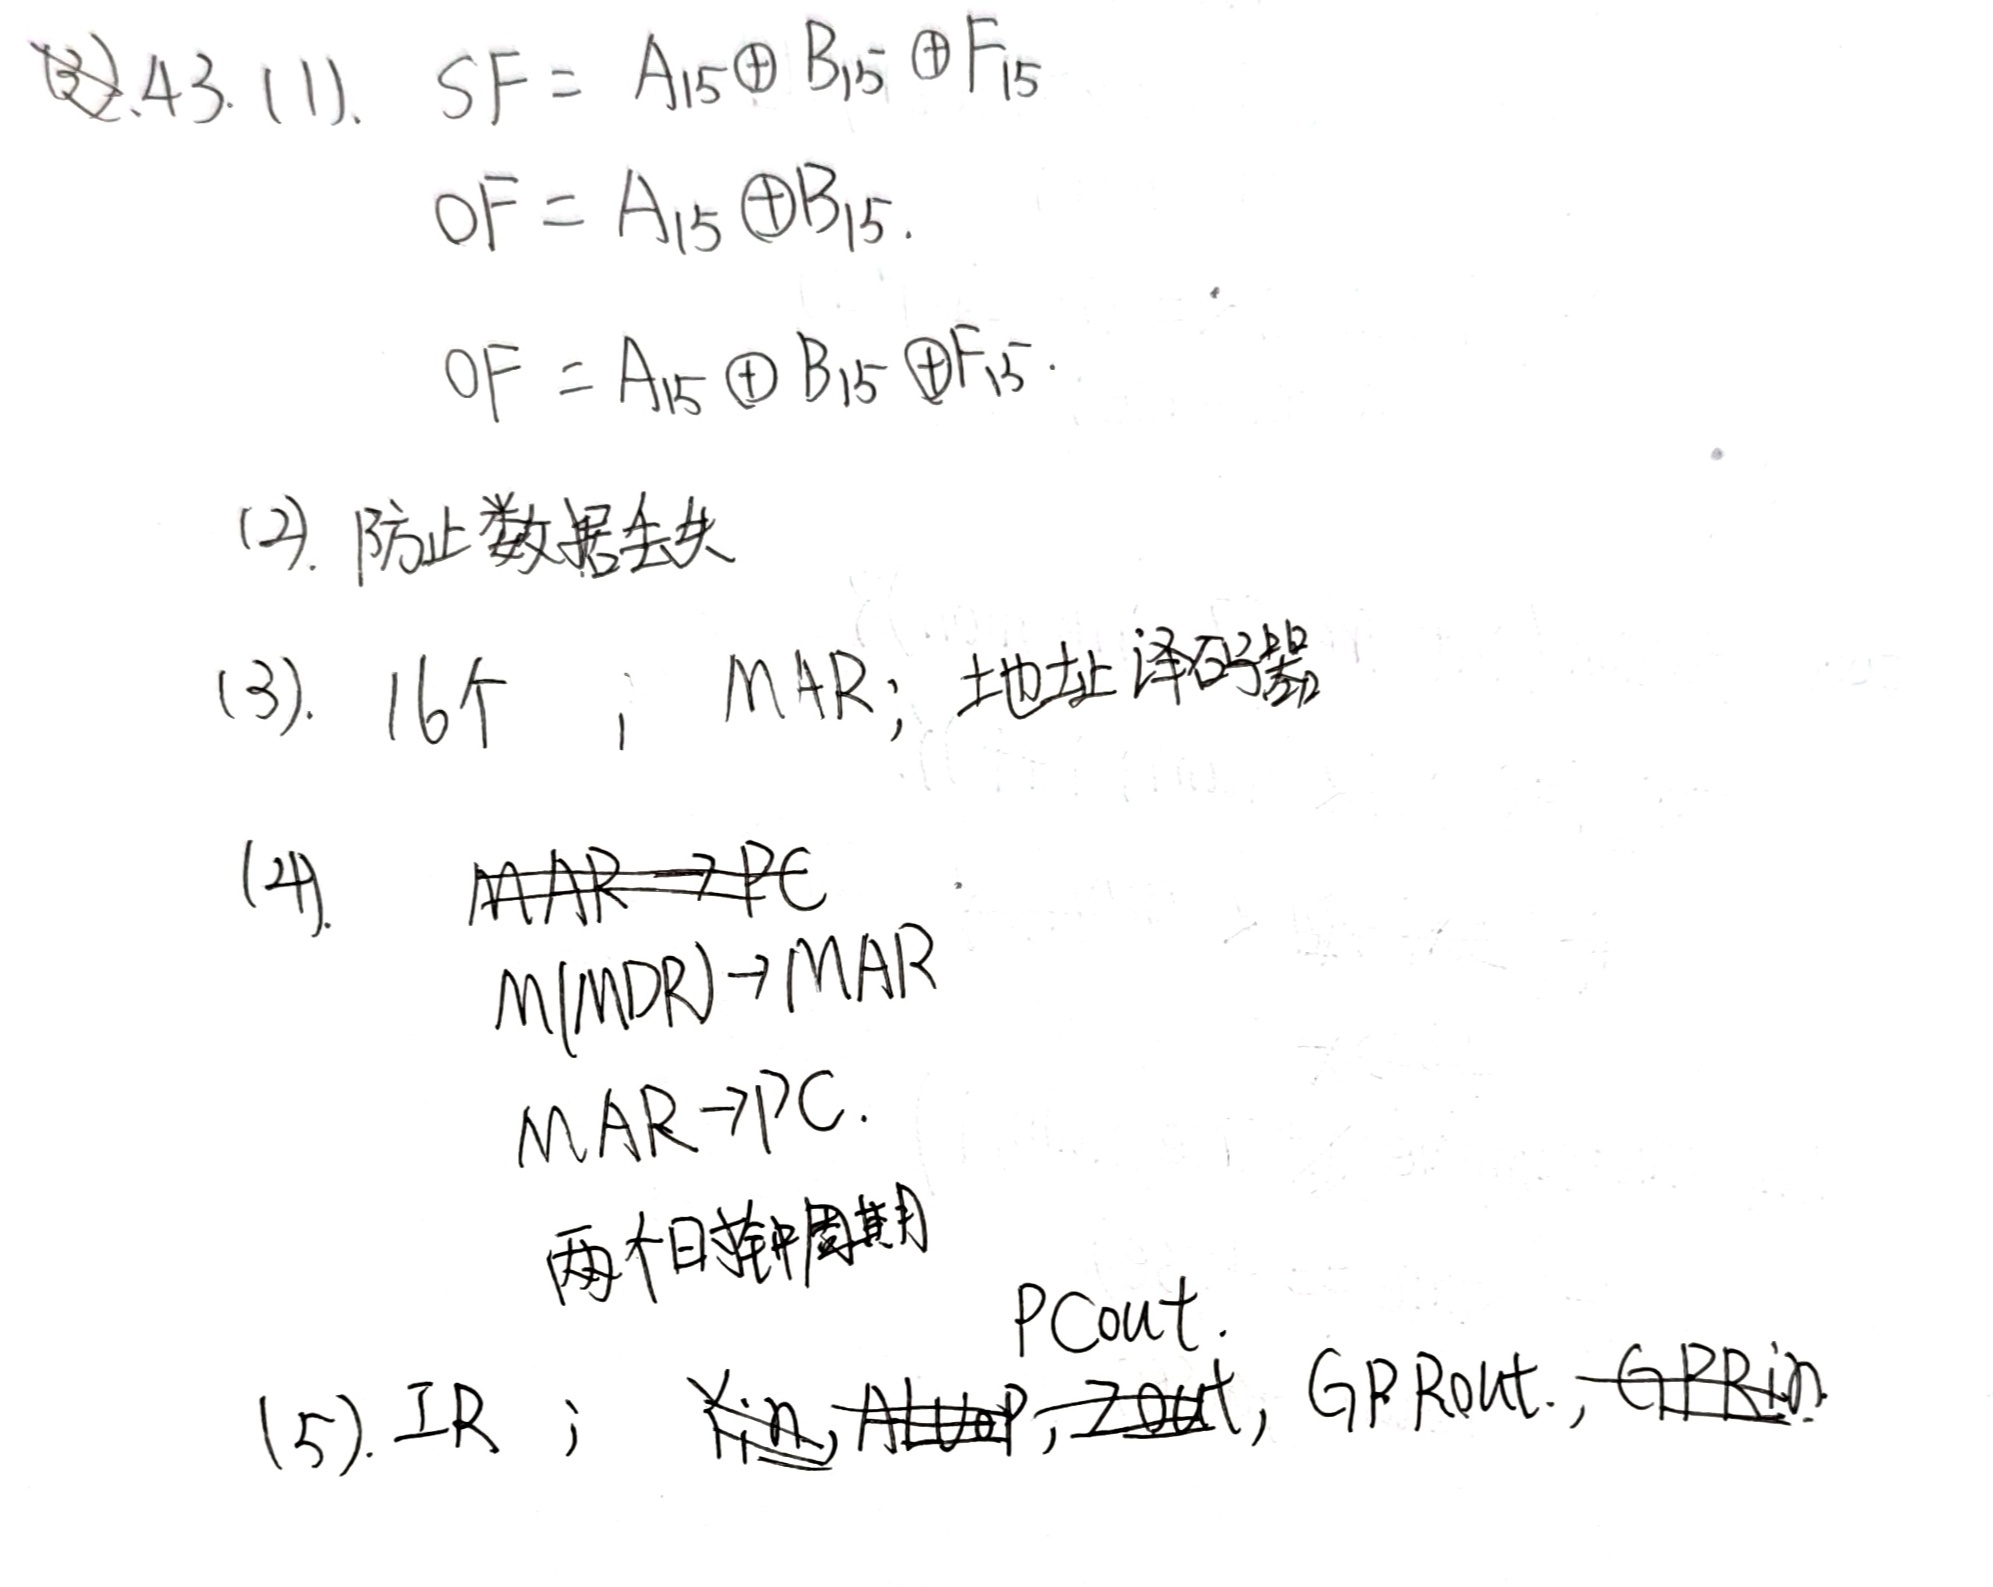 43.(1). SF = A15⊕B15⊕F15
OF = A15⊕B15.
OF = A15⊕B15⊕F15.
(2). 防止数据丢失
(3). 16个 ; MAR; 地址译码器
(4). MAR→PC
M(MDR)→MAR
MAR→PC.
两个时钟周期
PCout.
(5). IR ; Yin, ALUop, Zout, GPRout., GPRin.